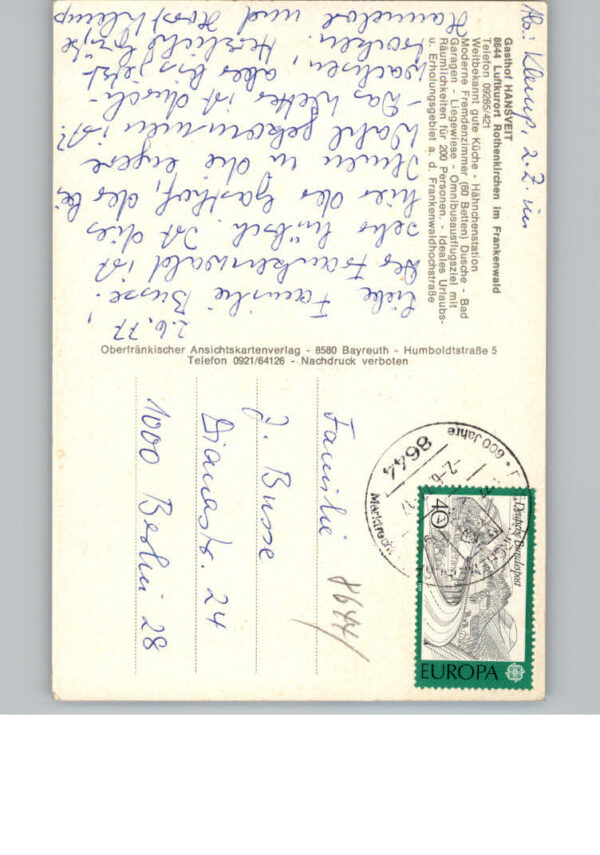 Ab.: Klemp, z.Z. im
Gasthof HANSVEIT
8644 Luftkurort Rothenkirchen im Frankenwald
Telefon 09265/421
Weitbekannt gute Küche - Hähnchenstation
Moderne Fremdenzimmer (60 Betten) Dusche - Bad
Garagen - Liegewiese - Omnibusausflugsziel mit
Räumlichkeiten für 200 Personen. - Ideales Urlaubs-
u. Erholungsgebiet a. d. Frankenwaldhochstraße
2.6.77
Liebe Familie Busse!
Der Frankenwald ist
sehr hübsch. Ist dies
hier der Gasthof, der bei
Ihnen in die engere
Wahl gekommen ist?
- Das Wetter ist durch-
wachsen, aber bis jetzt
trocken. Herzliche Grüße
Hannelore und Horst Klemp
Oberfränkischer Ansichtskartenverlag - 8580 Bayreuth - Humboldtstraße 5
Telefon 0921/64126 - Nachdruck verboten
Familie
J. Busse
Dianastr. 24
1000 Berlin 28
8644
8644
600 Jahre
Marktrecht
Deutsche Bundespost
40
EUROPA